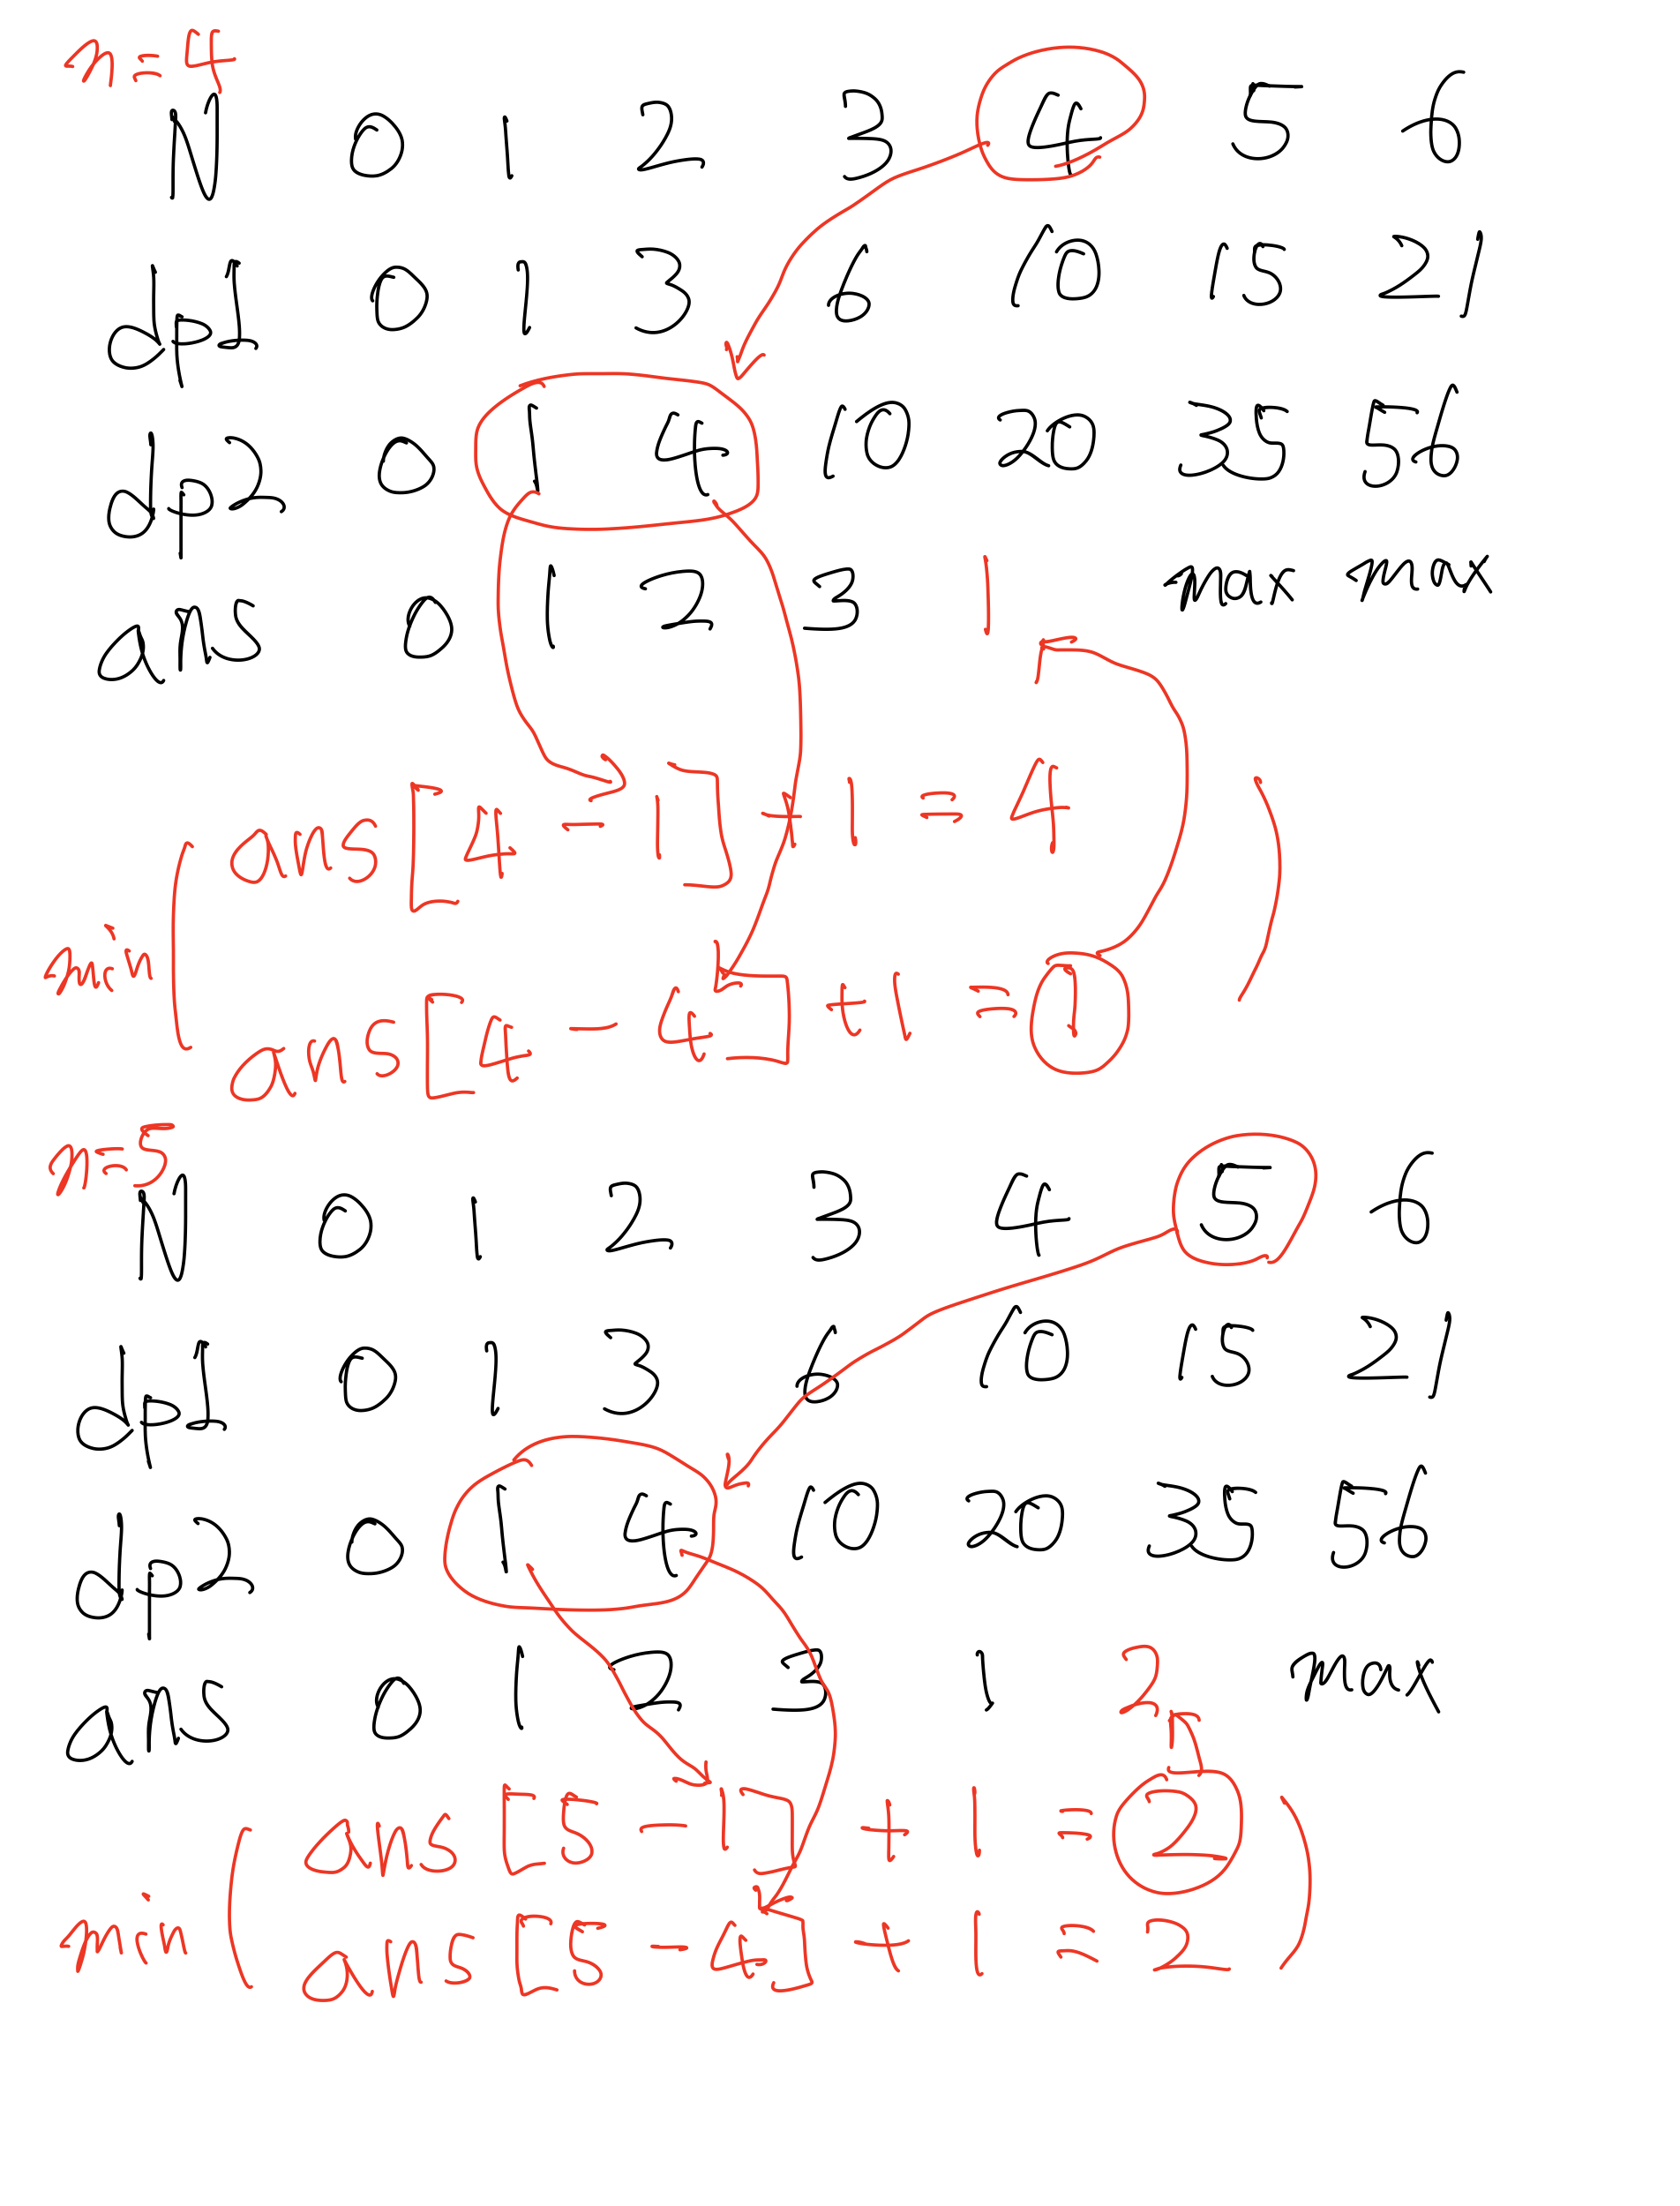 n=4
N 0 1 2 3 4 5 6
dp1 0 1 3 6 10 15 21
dp2 0 1 4 10 20 35 56
ans 0 1 2 3 1 max max
ans[4-1]+1=4
min( )
ans[4-4]+1=1
n=5
N 0 1 2 3 4 5 6
dp1 0 1 3 6 10 15 21
dp2 0 1 4 10 20 35 56
ans 0 1 2 3 1 2 max
ans[5-1]+1=2
min( )
ans[5-4]+1=2